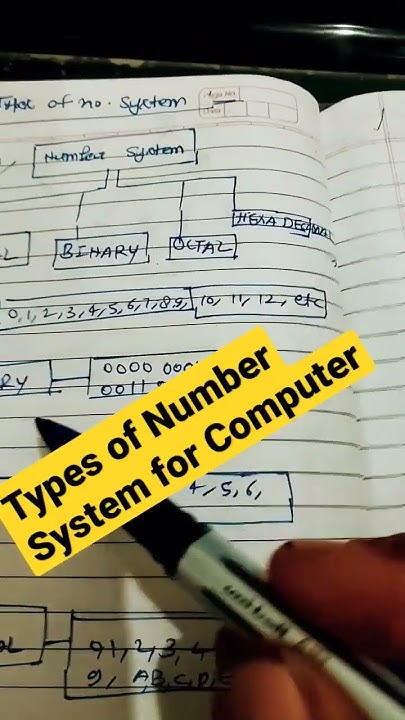 Type of no. System
Page No.
Date
Number System
HEXA DECIMAL
BINARY
OCTAL
0,1, 2, 3, 4, 5, 6, 7, 8, 9, 10, 11, 12, etc
RY
0000
0011
Types of Number
System for Computer
4, 5, 6,
9, A, B, C, D, E